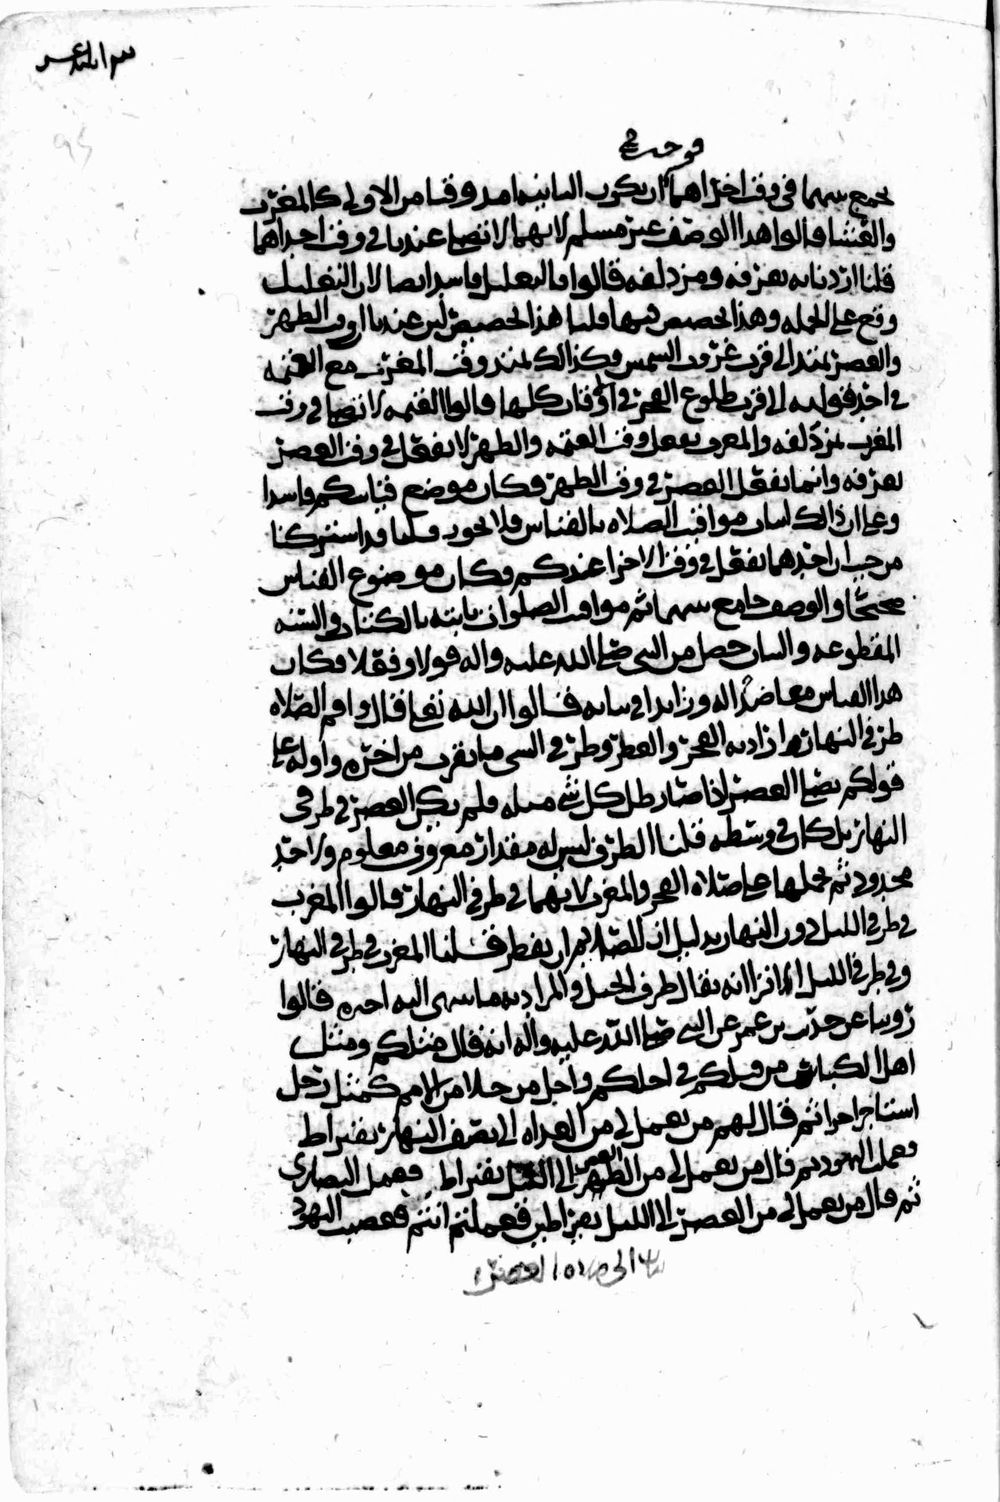 فوجب
يجمع بينهما في وقت احداهما ان يكون الثانية ما مد وقتا من الاولى كالمغرب
والعشا قالوا هذا الوصف غير مسلم لانهما لا تصلى عندنا في وقت احداهما
قلنا اردنا به بعرفه ومزدلفه قالوا فالتعليل فاسد ايضا لان التعليل
وقع على الجمله وهذا تخصيص فيها قلنا هذا تخصيص لمن عندنا ان وقت الظهر
والعصر يمتد الى قرب غروب الشمس وكذلك يمتد وقت المغرب مع العتمه
الى قرب طلوع الفجر في الاوقات كلها قالوا العتمه لا تصلى في وقت
المغرب بمزدلفه والمغرب يفعل وقت العتمه والظهر لا يفعل في وقت العصر
بعرفه وانما يفعل العصر في وقت الظهر فكان موضع قياسكم فاسدا
وعلى ان ذلك اثبات مواقيت الصلاه بالقياس فلا يجوز قلنا قد اشتركتا
من حيث ان احدهما يفعل في وقت الاخرا عندكم فكان موضوع القياس
صحيحا والوصف جامع بينهما ثم مواقيت الصلوات ثابته بالكتاب والسنه
المقطوعه والبيان حصل من النبي صلى الله عليه واله قولا وفعلا فكان
هذا القياس معاضدا له وزايدا في بيانه فقالوا ان الله تعالى قال واقم الصلاه
طرفي النهار اراد به الفجر والعصر وطرف الشي ما يقرب من اخره واوله على
قولكم يصلى العصر اذا صار ظل كل شي مثله فلم يكن العصر في طرفي
النهار بل كان في وسطه قلنا الطرف ليس له مقدار معروف معلوم ولا حد
محدود ثم نحملها على صلاه الفجر والمغرب لانهما في طرفي النهار قالوا المغرب
في طرف الليل دون النهار بدليل ان للصايم ان يفطر قلنا المغرب في طرف النهار
وفي طرف الليل الا ترا انه يقال طرف الحبل والمراد به ما ينتهي اليه اخره قالوا
روينا عن حديث بن عمر عن النبي صلى الله عليه واله انه قال مثلكم ومثل
اهل الكتاب من قبلكم في اجلكم واجل من خلا من الامم كمثل رجل
استاجر اجرا ثم قال لهم من يعمل لي من الغداه الى نصف النهار بقيراط
فعملت اليهود ثم قال من يعمل لي من الظهر الى العصر بقيراط فعمل النصارى
ثم قال من يعمل لي من العصر الى الليل بقيراطين فعملتم انتم فغضبت اليهود
الى صلاة العصر